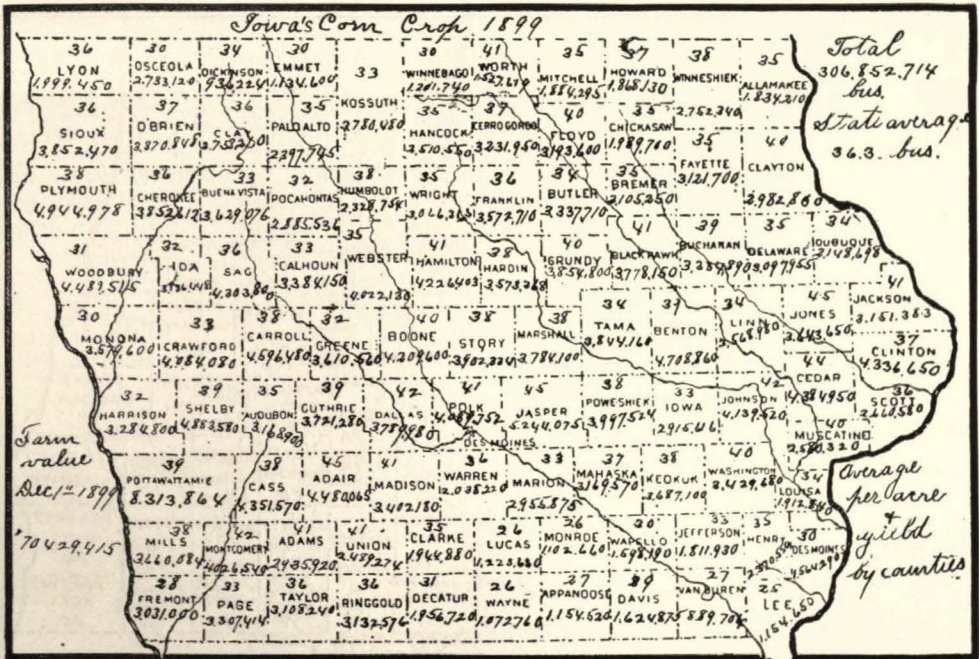 Iowa's Corn Crop 1899
Total
306,852,714
bus.
State average
36.3. bus.
36
LYON
1,999,450
30
OSCEOLA
2,733,120
34
DICKINSON
936,224
30
EMMET
1,134,600
33
KOSSUTH
2,780,480
30
WINNEBAGO
1,201,740
41
WORTH
35
MITCHELL
1,884,295
37
HOWARD
1,868,130
38
WINNESHIEK
2,752,340
35
ALLAMAKEE
1,834,210
36
SIOUX
3,852,470
37
O'BRIEN
3,870,848
36
CLAY
35
PALO ALTO
2,297,745
35
HANCOCK
2,510,550
37
CERRO GORDO
3,231,950
40
FLOYD
3,193,600
35
CHICKASAW
1,989,760
35
FAYETTE
3,121,700
40
CLAYTON
2,982,860
38
PLYMOUTH
4,944,978
36
CHEROKEE
3,852,612
33
BUENA VISTA
3,629,076
32
POCAHONTAS
2,885,536
38
HUMBOLDT
2,328,754
35
WRIGHT
36
FRANKLIN
3,572,710
34
BUTLER
3,337,710
35
BREMER
2,105,250
31
WOODBURY
4,489,515
32
IDA
36
SAC
4,303,80
33
CALHOUN
3,384,150
35
WEBSTER
4,022,130
41
HAMILTON
4,226,403
38
HARDIN
3,573,268
40
GRUNDY
3,854,800
41
BLACK HAWK
3,778,150
39
BUCHANAN
35
DELAWARE
3,097,955
34
DUBUQUE
2,148,698
30
MONONA
3,579,600
33
CRAWFORD
4,984,080
38
CARROLL
4,596,480
32
GREENE
3,610,560
40
BOONE
4,209,600
38
STORY
3,902,334
38
MARSHALL
3,784,100
34
TAMA
3,844,160
37
BENTON
4,708,860
34
LINN
45
JONES
3,643,650
41
JACKSON
3,151,383
37
CLINTON
4,336,650
44
CEDAR
4,384,950
36
SCOTT
2,660,580
32
HARRISON
3,284,800
39
SHELBY
4,883,580
35
AUDUBON
3,168,900
39
GUTHRIE
3,721,280
42
DALLAS
3,789,980
41
POLK
4,089,752
DES MOINES
45
JASPER
5,244,075
38
POWESHIEK
3,997,524
33
IOWA
2,915,616
42
JOHNSON
4,139,520
40
MUSCATINE
2,580,320
Farm
value
Dec 1st 1899
$70,429,415
39
POTTAWATTAMIE
8,313,864
38
CASS
4,351,570
45
ADAIR
4,480,065
41
MADISON
3,402,180
36
WARREN
2,038,220
33
MARION
2,955,875
37
MAHASKA
3,169,570
38
KEOKUK
3,687,100
40
WASHINGTON
3,429,680
34
LOUISA
1,912,840
Average
per acre
&
yield
by counties
38
MILLS
3,660,084
42
MONTGOMERY
4,026,540
41
ADAMS
2,935,920
41
UNION
2,489,274
35
CLARKE
1,944,880
26
LUCAS
1,223,680
26
MONROE
1,102,660
30
WAPELLO
1,598,190
33
JEFFERSON
1,811,930
35
HENRY
30
DES MOINES
28
FREMONT
3,031,000
33
PAGE
3,307,414
36
TAYLOR
3,108,240
36
RINGGOLD
3,132,576
31
DECATUR
1,956,720
26
WAYNE
1,072,760
27
APPANOOSE
1,154,520
29
DAVIS
1,624,875
27
VAN BUREN
889,704
25
LEE
1,154,650